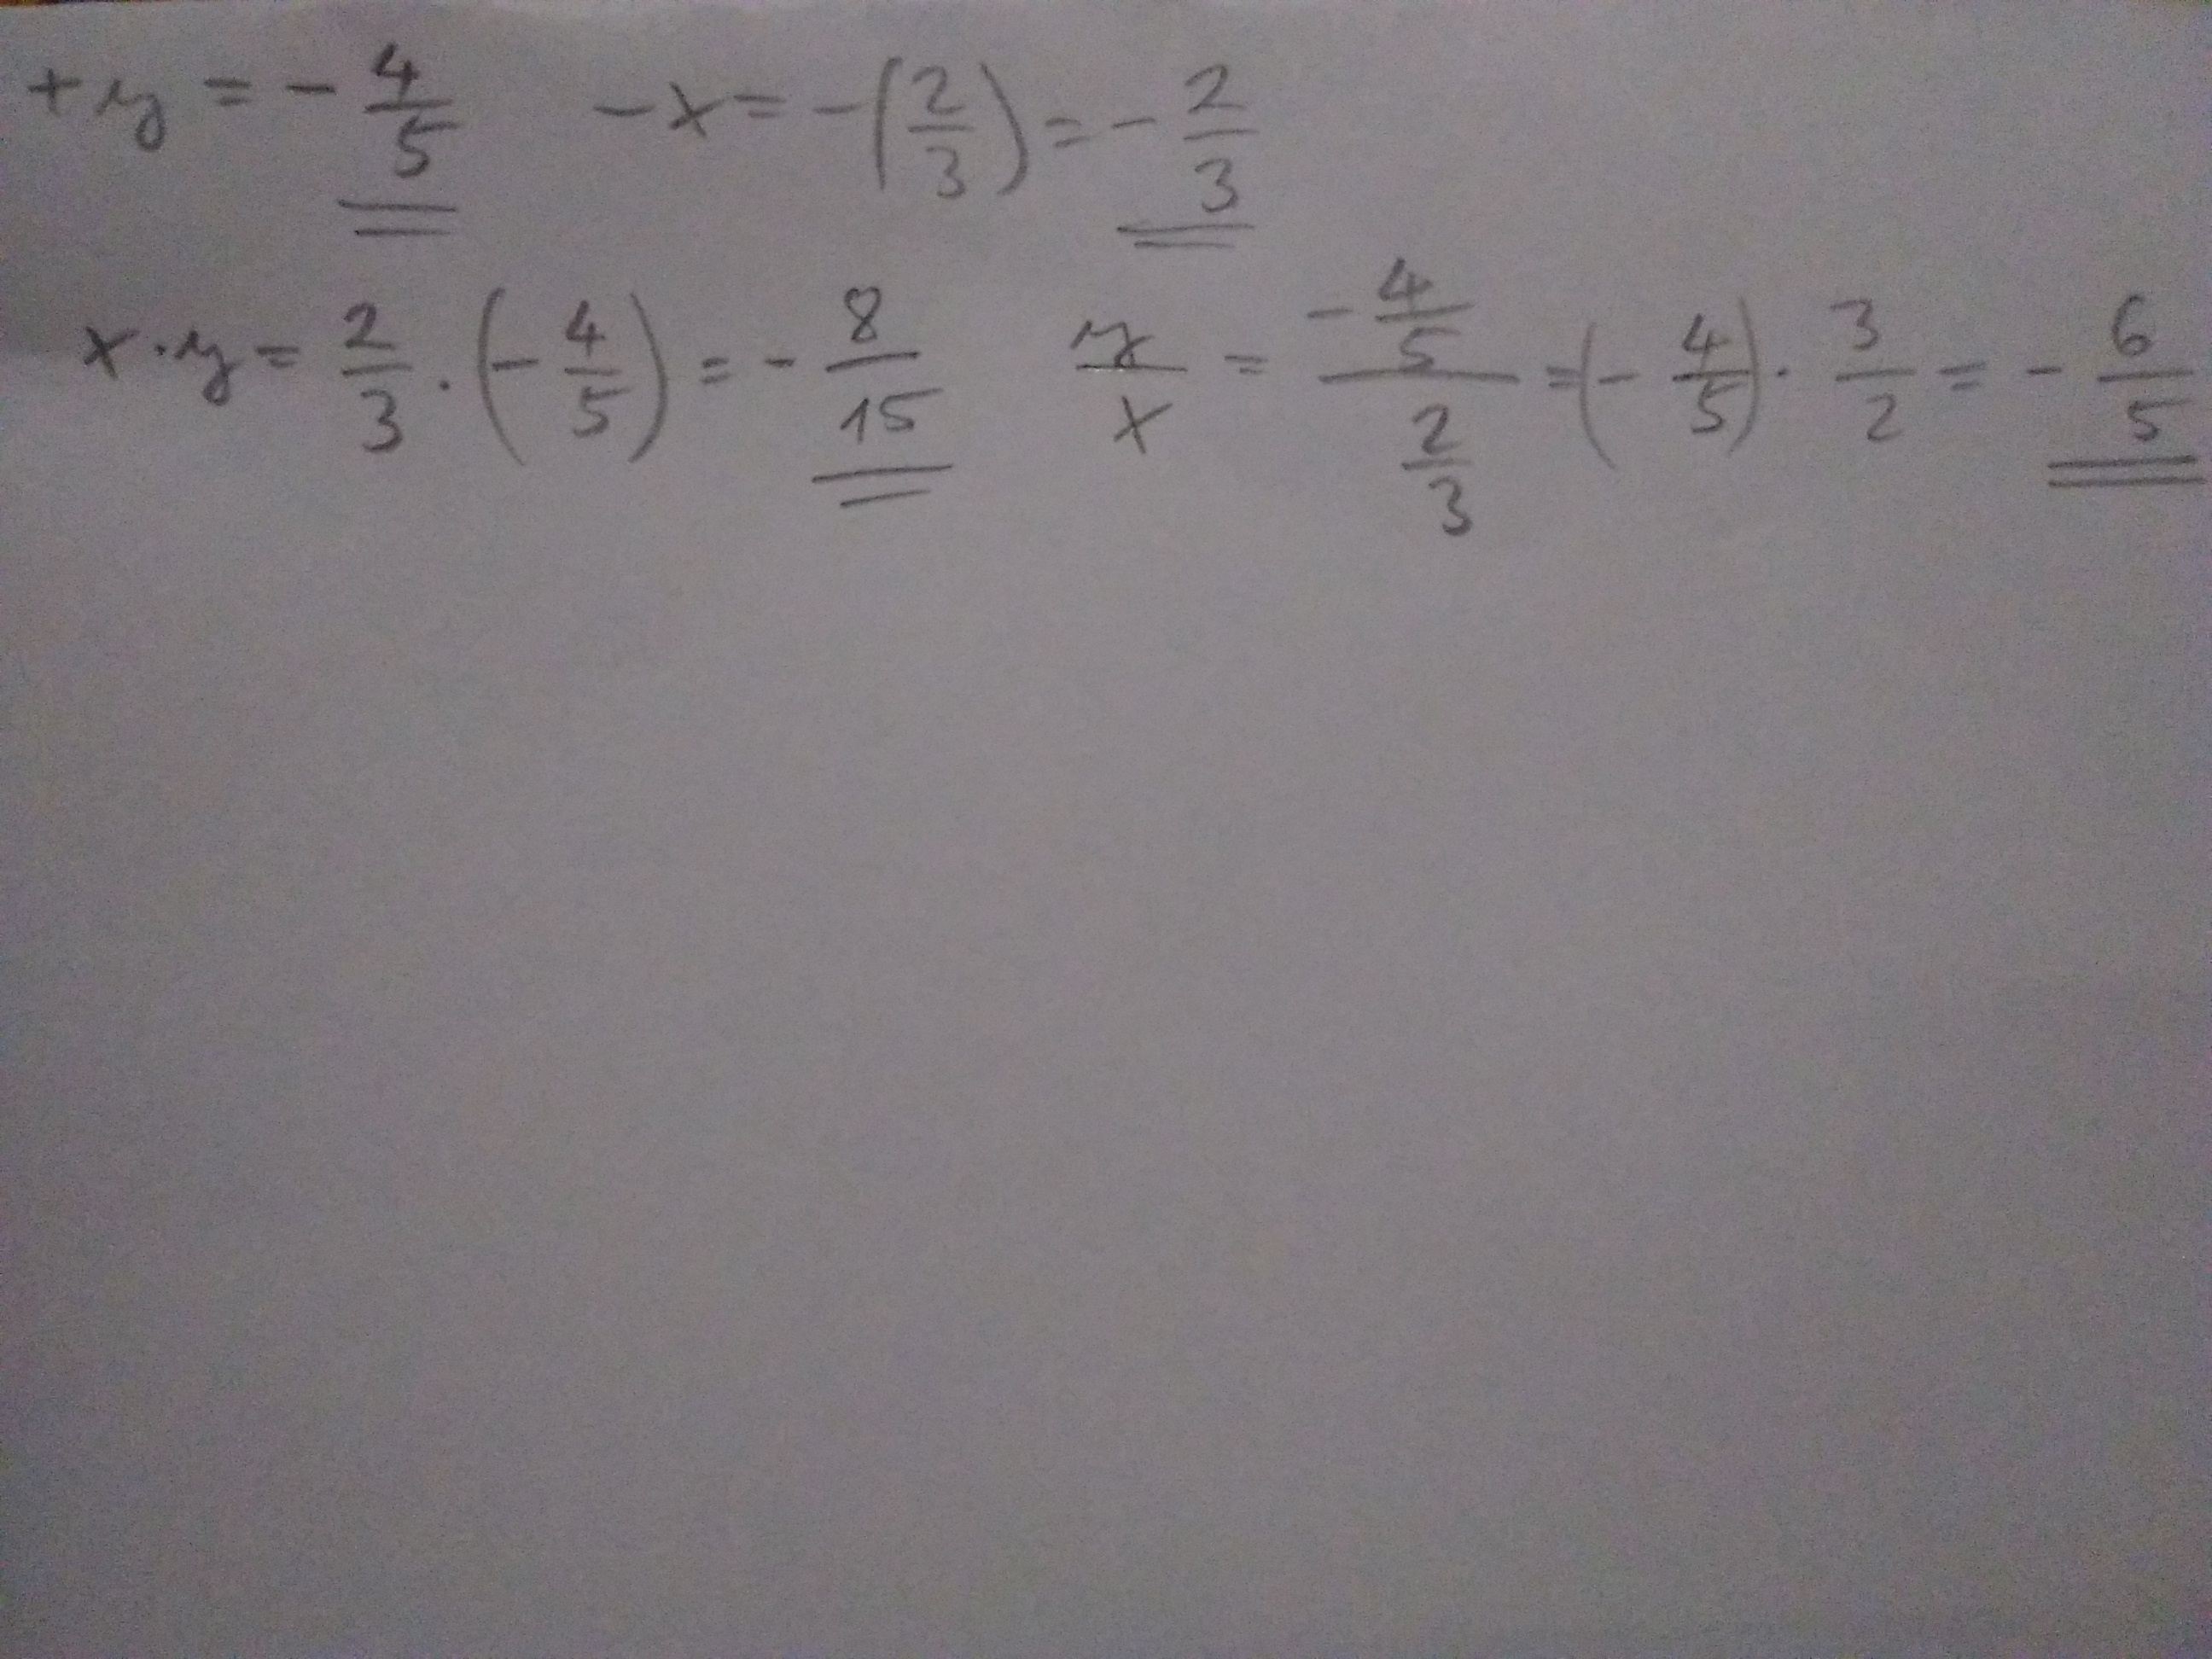 +y = - 4/5   -x = -(2/3) = - 2/3
x · y = 2/3 · (- 4/5) = - 8/15   y/x = (- 4/5)/(2/3) = (- 4/5) · 3/2 = - 6/5